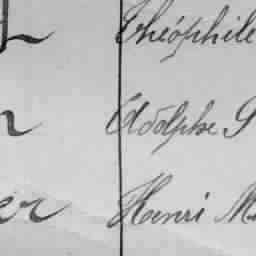 Théophile
Adolphe S
er Henri M